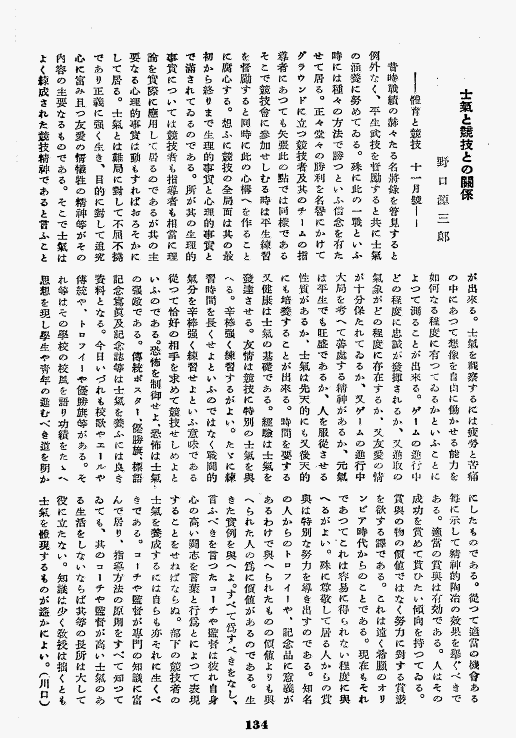 士氣と競技との關係
野口源三郎
――體育と競技 十一月號――
昔時戰績の赫々たる名將錄を管見すると
例外なく、平生武技を督勵すると共に士氣
の涵養に努めてゐる。殊に此の一戰といふ
時には種々の方法で勝つといふ信念を有た
せて居る。正々堂々の勝利を名譽にかけて
グラウンドに立つ競技者及其のチームの指
導者にあつても矢張此の點では同樣である
そこで競技會に參加せしむる時は平生練習
を督勵すると同時に此の心構へを作ること
に腐心する。想ふに競技の全局面は其の最
初から終りまで生理的事實と心理的事實と
で滿されてゐるのである。所が其の生理的
事實については競技者も指導者も相當に理
論を實際に應用して居るのであるが其の主
要なる心理的事實は動もすればおろそかに
して居る。士氣とは難局に對して不屈不撓
であり正義に强く生き、目的に對して追究
心に富み且つ友愛の情犧牲の精神等がその
內容の主要なるものである。そこで士氣は
よく鍊成された競技精神であると言ふこと
が出來る。士氣を觀察するには疲勞と苦痛
の中にあつて想像を自由に働かせる能力を
如何なる程度に有つてゐるかといふことに
よつて測ることが出來る。ゲームの進行中
どの程度に忠誠が發揮されるか、又進取の
氣象がどの程度に存在するか、又友愛の情
が十分保たれてゐるか、又ゲームの進行中
大局を考へて善處する精神があるか、元氣
は平生でも旺盛であるか、人を服從させる
性質があるか、士氣は先天的にも又後天的
にも培養することが出來る。時間を要する
又健康は士氣の基礎である。經驗は士氣を
發達させる。友情は競技に特別の士氣を與
へる。辛棒强く練習するがよい。たゞに練
習時間を長くせよといふのではなく戰鬪的
氣分を辛棒强く練習せよといふ意味である
從つて恰好の相手を求めて競技せしめよと
いふのである。恐怖を制御せよ、恐怖は士氣
の强敵である。傳統、ポスター、優勝旗、標語
記念寫眞及記念誌等は士氣を養ふには良き
資料となる。今日いづれも校歌やエールや
傳統や、トロフイーや優勝旗等がある。そ
れ等はその學校の校風を語り功績をたゝへ
思想を現し學生や靑年の進むべき道を明か
にしたものである。從つて適當の機會ある
每に示して精神的陶冶の效果を擧ぐべきで
ある。適當の賞與は有效である。人はその
成功を賞めて貰ひたい傾向を持つてゐる。
賞與の物の價値ではなく努力に對する賞讚
を欲する譯である。これは遠く希臘のオリ
ンピア時代からのことである。現在もそれ
であつてこれは容易に得られない程度に與
へるがよい。殊に尊敬して居る人からの賞
與は特別な努力を導き出すのである。知名
の人からのトロフイーや、記念品に意義が
あるわけで與へられたものの價値よりも與
へられた人の爲に價値があるのである。生
きた實例を與へよ。すべて爲すべきをなし、
言ふべきを言つたコーチや監督は彼れ自身
心の高い鬪志を言葉と行爲とによつて表現
することをせねばならぬ。部下の競技者の
士氣を養成するには自らも亦それに生くべ
きである。コーチや監督が專門の知識に富
んで居り、指導方法の原則をすべて知つて
ゐても、其のコーチや監督が高い士氣のあ
る生活をしないならば其等の長所は大して
役に立たない。知識は少く敎授は拙くとも
士氣を體現するものが遙かによい。(川口)
134